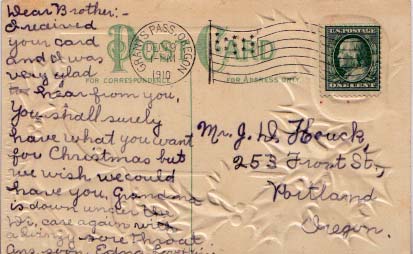 Dear Brother:-
I received
your card
and I was
very glad
to hear from you,
You shall surely
have what you want
for Christmas but
we wish we could
have you, Grandma
is down under the
care again with
a sore throat
Ans. soon, Edna
POST CARD
FOR CORRESPONDENCE
FOR ADDRESS ONLY
GRANTS PASS, OREGON
1910
U.S. POSTAGE
ONE CENT
Mr. J. D. Houck,
253 Front St.,
Portland
Oregon.